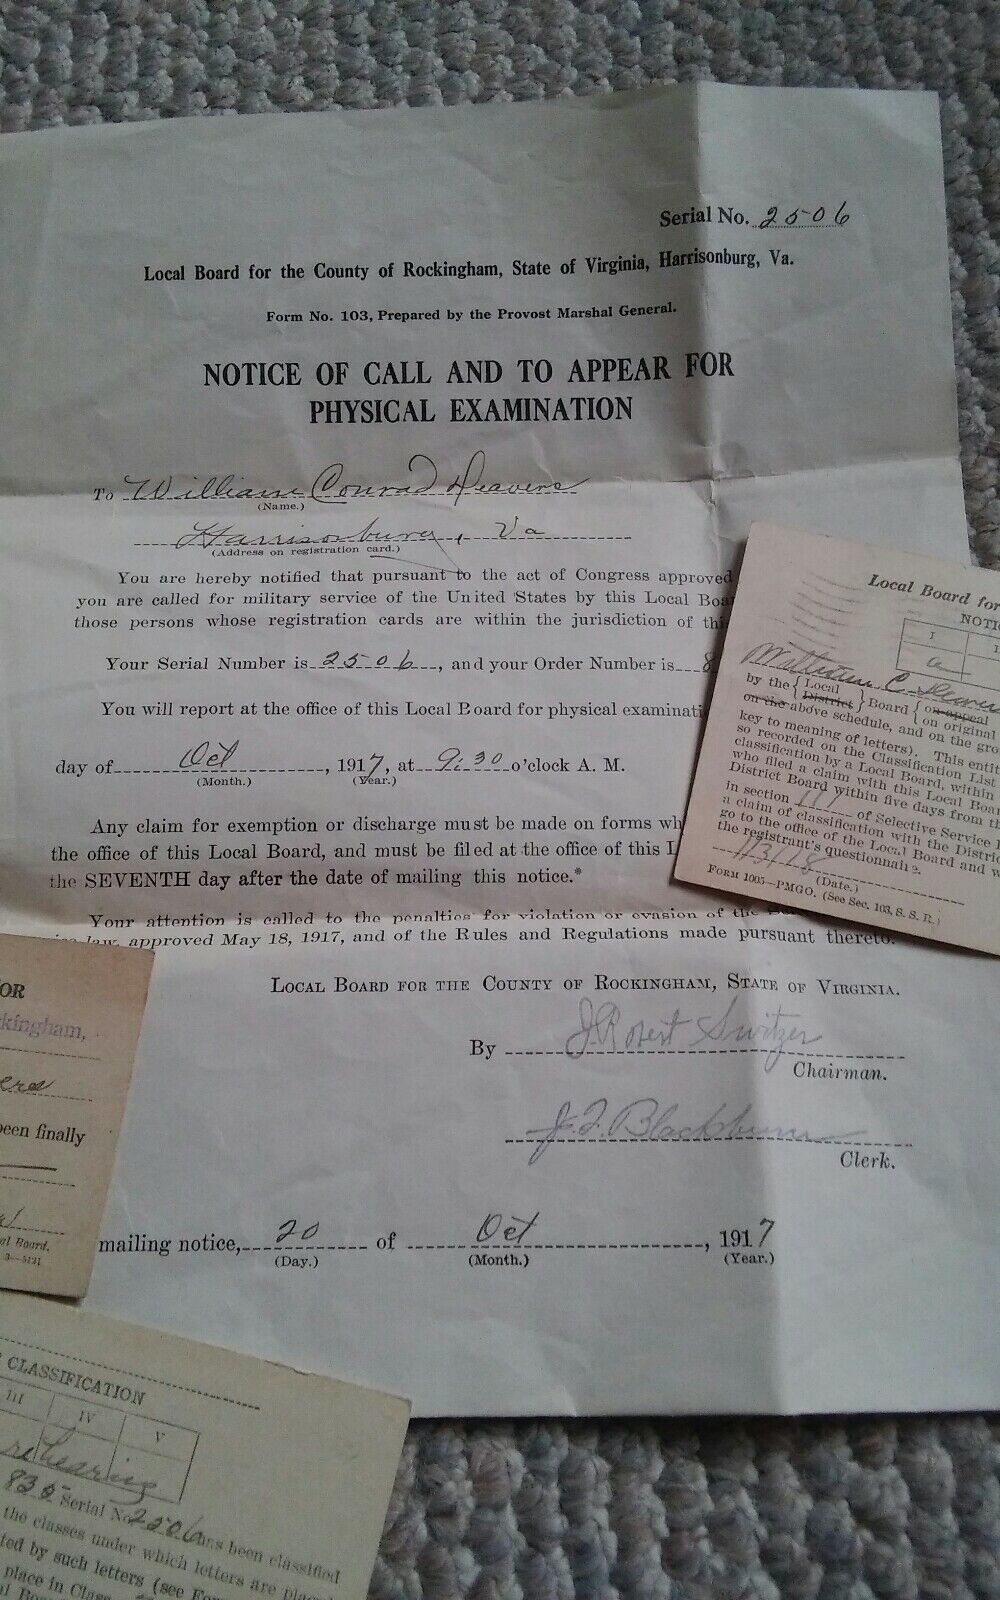 Serial No. 2506
Local Board for the County of Rockingham, State of Virginia, Harrisonburg, Va.
Form No. 103, Prepared by the Provost Marshal General.
NOTICE OF CALL AND TO APPEAR FOR
PHYSICAL EXAMINATION
To William Conrad Deavers
(Name.)
Harrisonburg, Va
(Address on registration card.)
You are hereby notified that pursuant to the act of Congress approved
you are called for military service of the United States by this Local Boa
those persons whose registration cards are within the jurisdiction of thi
Your Serial Number is 2506, and your Order Number is 8
You will report at the office of this Local Board for physical examinati
day of Oct, 1917, at 9:30 o'clock A. M.
(Month.) (Year.)
Any claim for exemption or discharge must be made on forms wh
the office of this Local Board, and must be filed at the office of this L
the SEVENTH day after the date of mailing this notice.*
Your attention is called to the penalties for violation or evasion of the
law, approved May 18, 1917, and of the Rules and Regulations made pursuant thereto.
Local Board for the County of Rockingham, State of Virginia.
By J. Robert Switzer
Chairman.
J. F. Blackburn
Clerk.
mailing notice, 20 of Oct, 1917
(Day.) (Month.) (Year.)
Local Board for
NOTIC
I
a
C. Deavers
by the { Local District } Board { on appeal on original
on the above schedule, and on the gro
key to meaning of letters). This entit
so recorded on the Classification List
classification by a Local Board, within
who filed a claim with this Local Boar
District Board within five days from th
in section 111 of Selective Service
a claim of classification with the Distric
go to the office of the Local Board and
the registrant's questionnaire.
1/3/18
(Date.)
Form 1005—PMGO. (See Sec. 103, S. S. R.)
OR
kingham,
ers
een finally
al Board.
3—5121
CLASSIFICATION
III IV V
rehearing
835 Serial No. 2506 has been classified
the classes under which letters are placed
ted by such letters (see For
place in Class